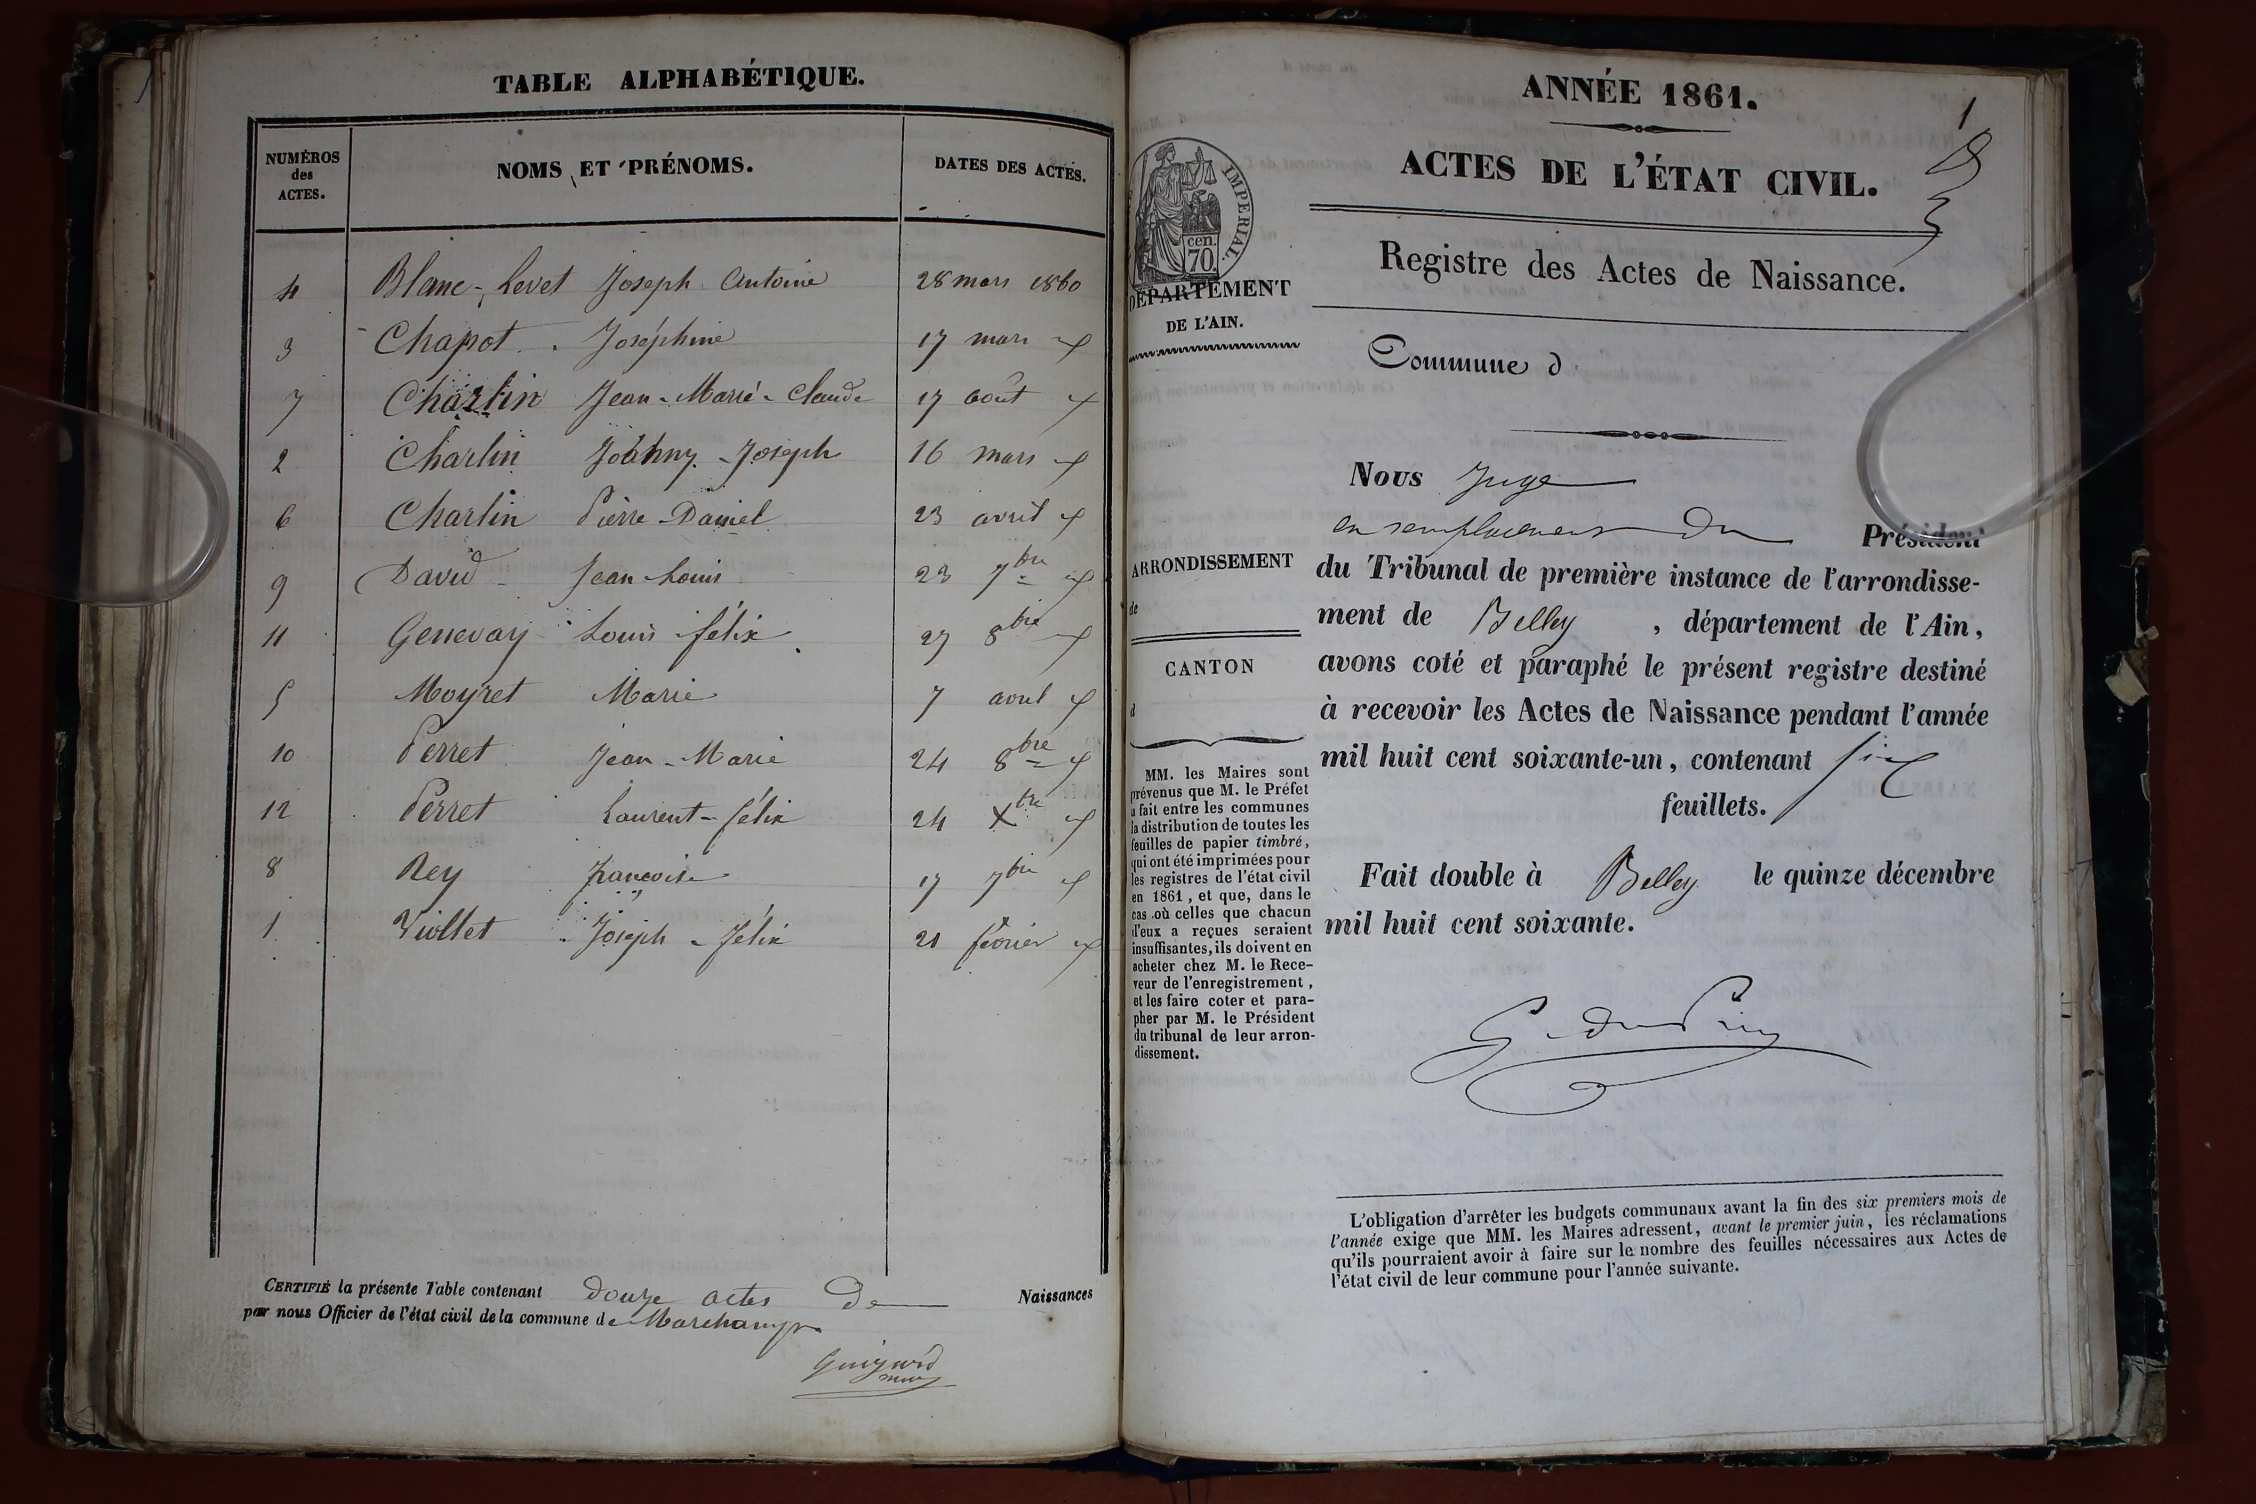 TABLE ALPHABÉTIQUE.
NUMÉROS des ACTES. NOMS ET PRÉNOMS. DATES DES ACTES.
4 Blanc-Levet Joseph Antoine 28 mars 1860
3 Chapot Joséphine 17 mars
7 Charlin Jean-Marie-Claude 17 août
2 Charlin Joahny-Joseph 16 mars
6 Charlin Pierre-Daniel 23 avril
9 David Jean-Louis 23 7bre
11 Genevay Louis félix 27 8bre
5 Moyret Marie 7 avril
10 Perret Jean-Marie 24 8bre
12 Perret Laurent-félix 24 Xbre
8 Rey françoise 17 7bre
1 Viollet Joseph-félix 21 février
CERTIFIÉ la présente Table contenant douze actes de Naissances
par nous Officier de l'état civil de la commune de Marchamp
Guigard
maire
1
ANNÉE 1861.
ACTES DE L'ÉTAT CIVIL.
Registre des Actes de Naissance.
IMPERIAL.
cen.
70.
DÉPARTEMENT
DE L'AIN.
Commune d
ARRONDISSEMENT
de
CANTON
d
MM. les Maires sont
prévenus que M. le Préfet
a fait entre les communes
la distribution de toutes les
feuilles de papier timbré,
qui ont été imprimées pour
les registres de l'état civil
en 1861, et que, dans le
cas où celles que chacun
d'eux a reçues seraient
insuffisantes, ils doivent en
acheter chez M. le Rece-
veur de l'enregistrement,
et les faire coter et para-
pher par M. le Président
du tribunal de leur arron-
dissement.
Nous Juge
en remplacement du Président
du Tribunal de première instance de l'arrondisse-
ment de Belley, département de l'Ain,
avons coté et paraphé le présent registre destiné
à recevoir les Actes de Naissance pendant l'année
mil huit cent soixante-un, contenant six
feuillets.
Fait double à Belley le quinze décembre
mil huit cent soixante.
L'obligation d'arrêter les budgets communaux avant la fin des six premiers mois de
l'année exige que MM. les Maires adressent, avant le premier juin, les réclamations
qu'ils pourraient avoir à faire sur le nombre des feuilles nécessaires aux Actes de
l'état civil de leur commune pour l'année suivante.